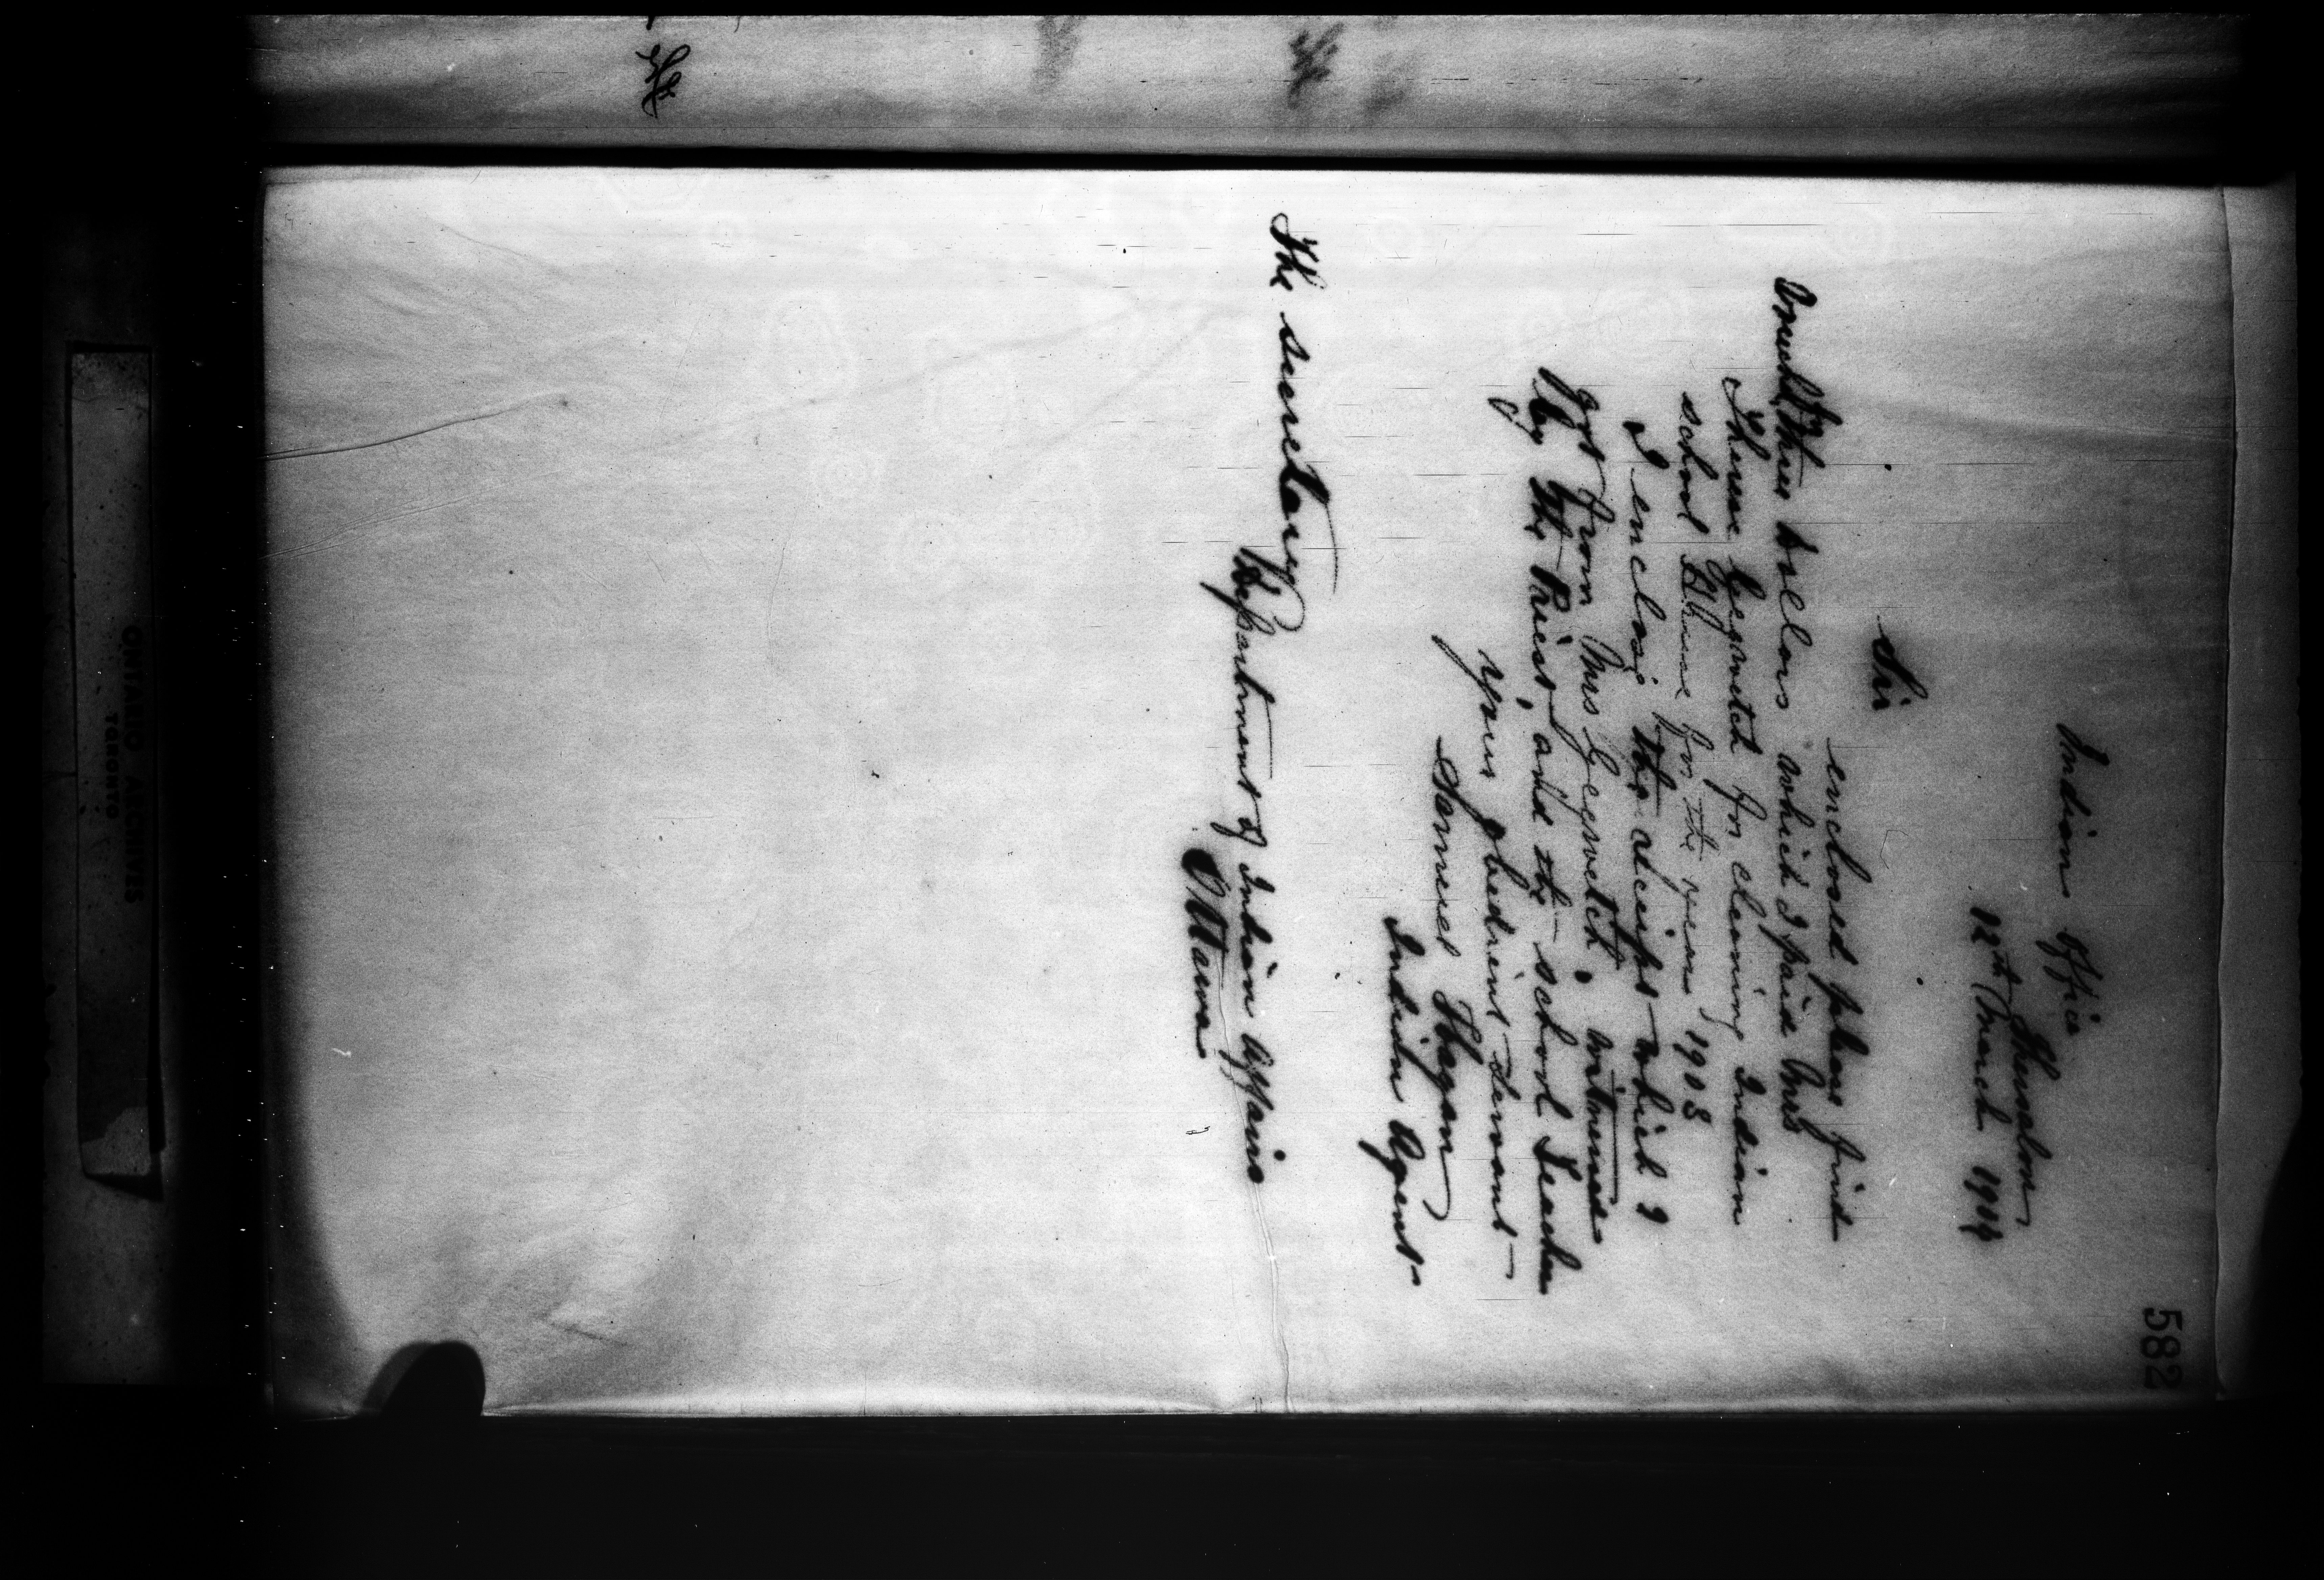 582
Indian Office
Thessalon
12th March 1904
Sir
enclosed please find
dollars which I paid Mrs
for cleaning Indian
school House for the year 1903
I enclose the receipt which I
got from Mrs witnessed
by the Priest, and the school Teacher
your obedient servant
Samuel Hagan
Indian Agent
The secretary
Department of Indian Affairs
Ottawa
ONTARIO ARCHIVES
TORONTO